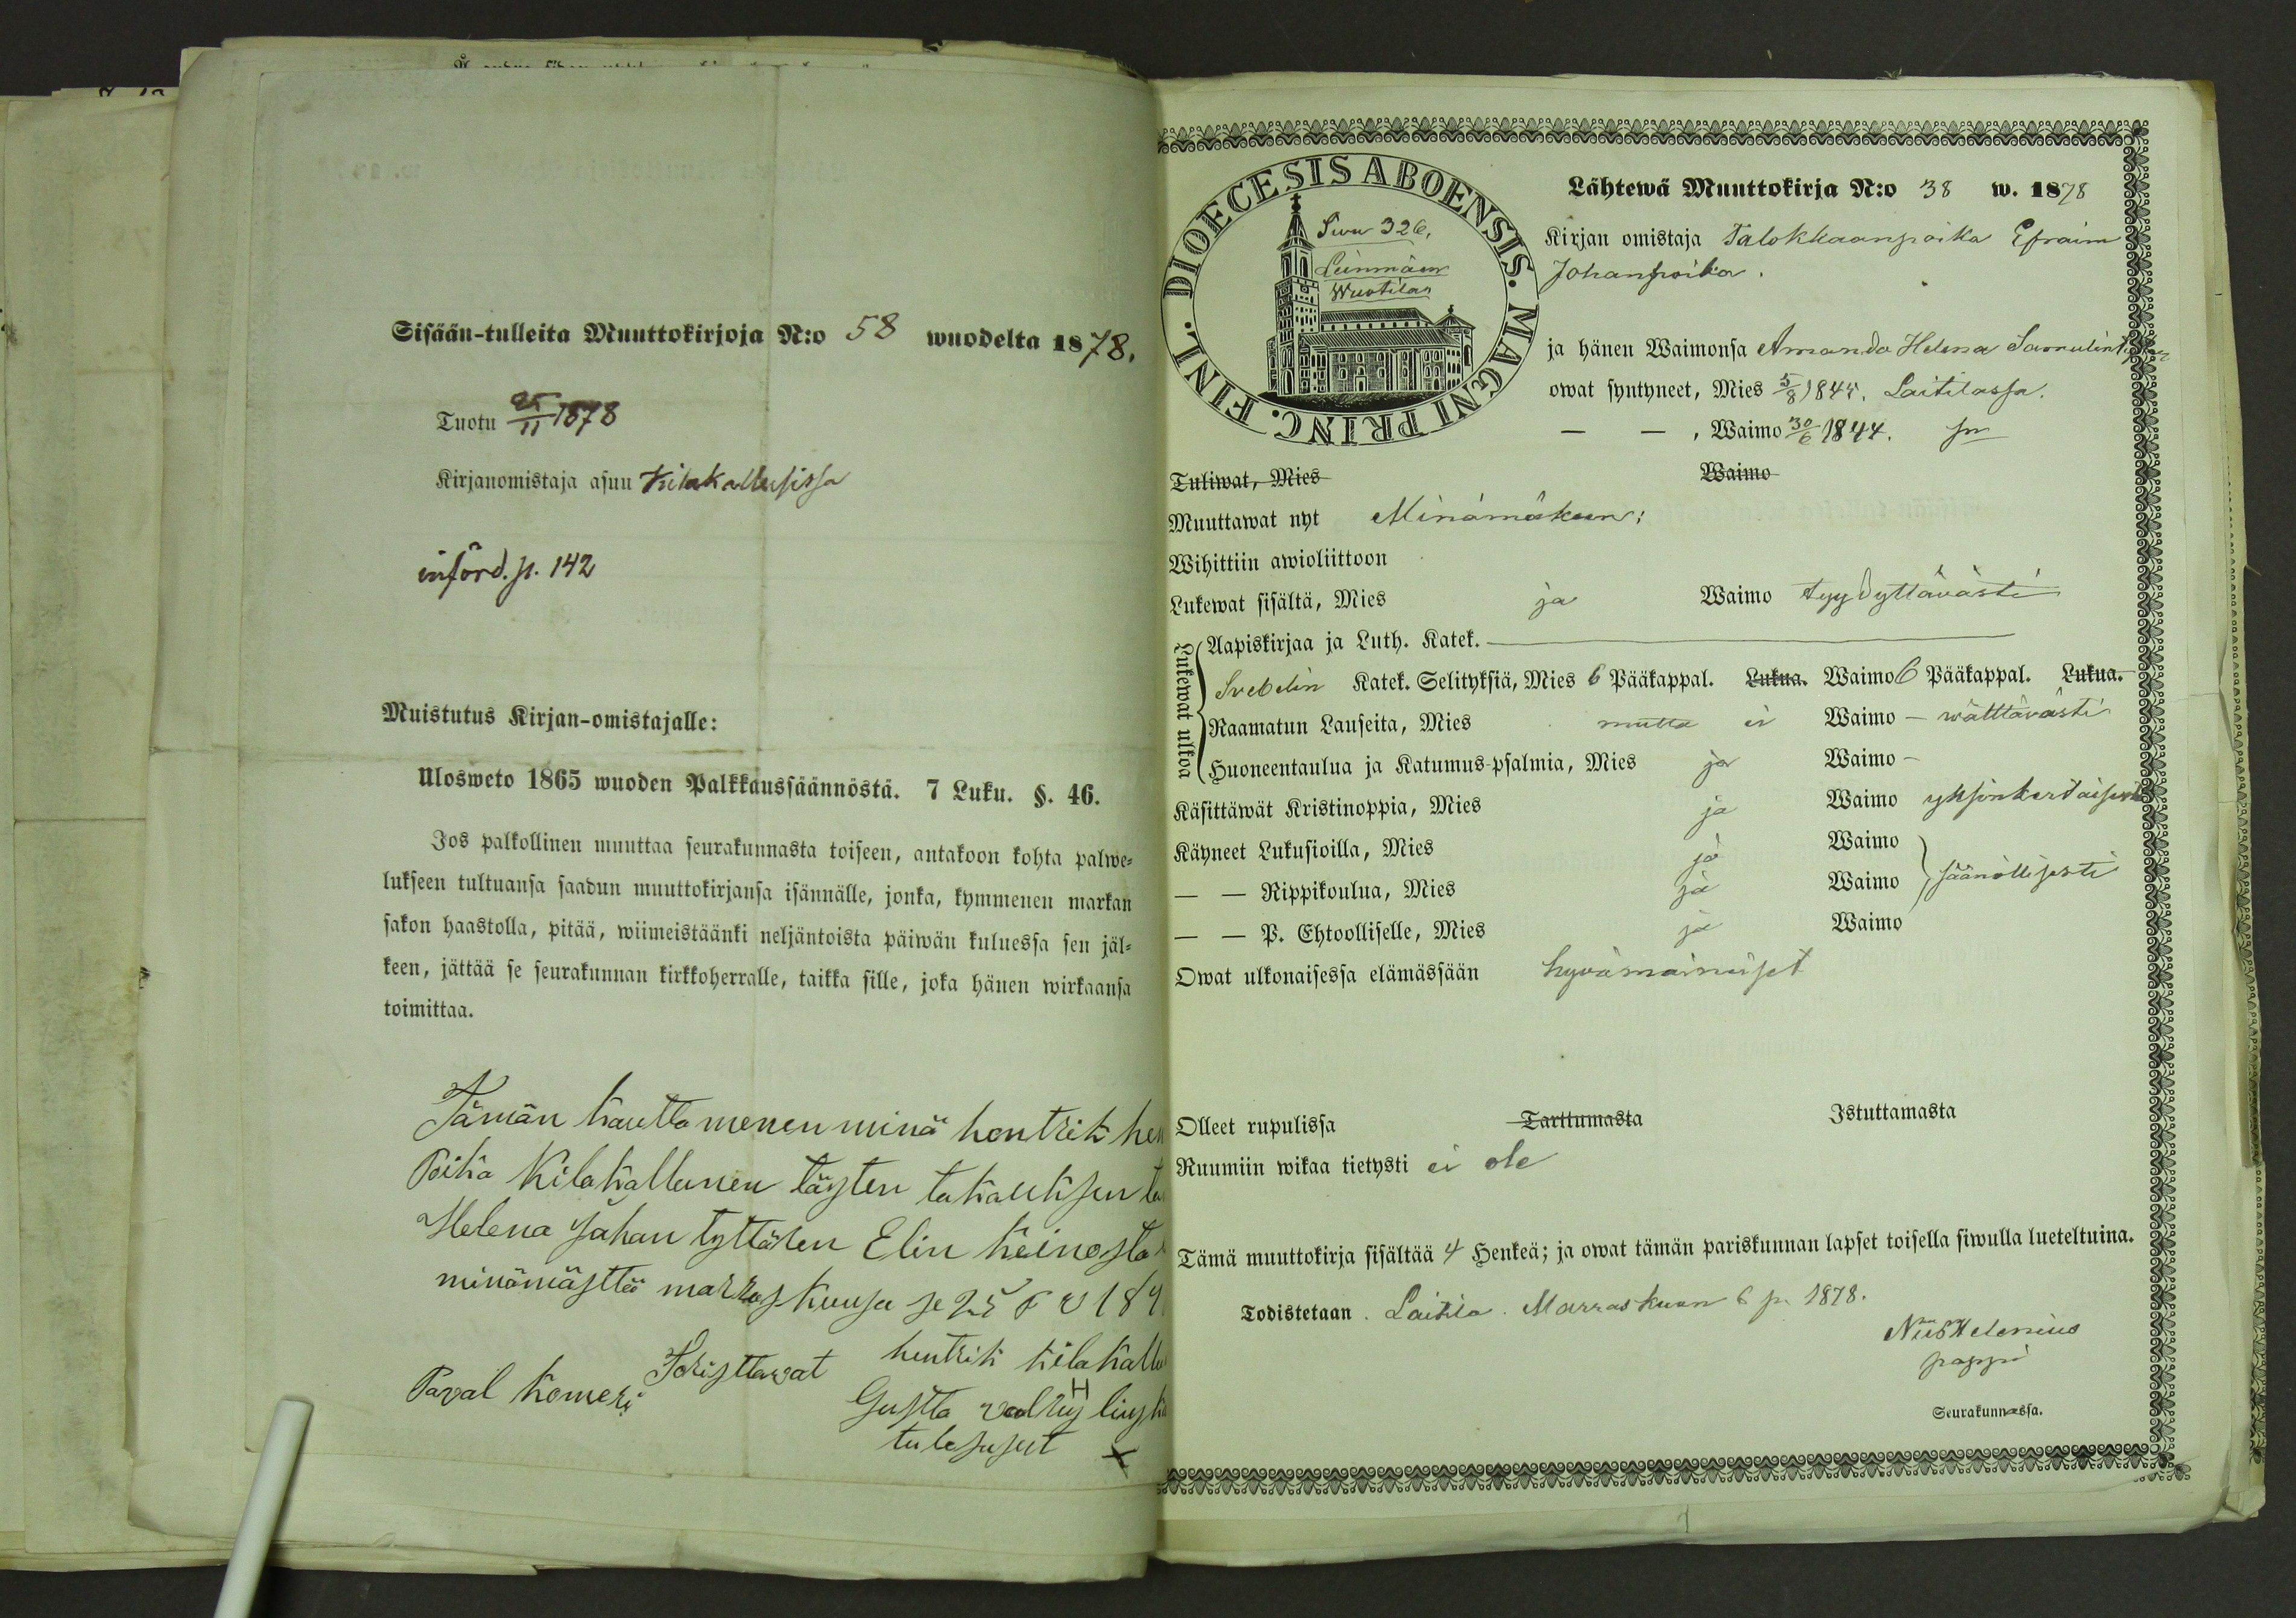 Sisään-tulleita Muuttokirjoja N:o 58 wuodelta 1878.
Tuotu 25/11 1878
Kirjanomistaja asuu Kilakallusissa
införd. p. 142
Muistutus Kirjan-omistajalle:
Ulosweto 1865 wuoden Palkkaussäännöstä. 7 Luku. §. 46.
Jos palkollinen muuttaa seurakunnasta toiseen, antakoon kohta palwe-
lukseen tultuansa saadun muuttokirjansa isännälle, jonka, kymmenen markan
sakon haastolla, pitää, wiimeistäänki neljäntoista päiwän kuluessa sen jäl-
keen, jättää se seurakunnan kirkkoherralle, taikka sille, joka hänen wirkaansa
toimittaa.
Tämän kautta menen minä hentrik
Poika Kilakallunen täyten takauksen
Helena Johan tyttären Elin keinosta
minämästtä marraskuusa se 25 P v 18
hentrik kilakallu
Toristtavat
Paval
Gustta
H
X
DIOECESIS ABOENSIS. MAGNI PRINC. FINL.
Siwu 326.
Leinmäen
Wuotilas
Lähtewä Muuttokirja N:o 38 w. 1878
Kirjan omistaja Talokkaanpoika Efraim
Johanpoika.
ja hänen Waimonsa Amanda Helena
owat syntyneet, Mies 5/8 1845. Laitilassa.
— — , Waimo 30/6 1844. sn
Tuliwat, Mies Waimo
Muuttawat nyt Minämäkeen:
Wihittiin awioliittoon
Lukewat sisältä, Mies ja Waimo tyydyttäwästi
Lukewat ulkoa
Aapiskirjaa ja Luth. Katek.
Svebelin Katek. Selityksiä, Mies 6 Pääkappal. Lukua. Waimo 6 Pääkappal. Lukua.
Raamatun Lauseita, Mies mutta ei Waimo — wälttäwästi
Huoneentaulua ja Katumus-psalmia, Mies ja Waimo —
Käsittäwät Kristinoppia, Mies ja Waimo yksinkertaisesti
Käyneet Lukusioilla, Mies ja Waimo
— — Rippikoulua, Mies ja Waimo säänöllisesti
— — P. Ehtoolliselle, Mies ja Waimo
Owat ulkonaisessa elämässään hyvämainiiset
Olleet rupulissa Tarttumasta Istuttamasta
Ruumiin wikaa tietysti ei ole
Tämä muuttokirja sisältää 4 Henkeä; ja owat tämän pariskunnan lapset toisella siwulla lueteltuina.
Todistetaan. Laitila. Marraskuun 6 p. 1878.
Helenius
pappi
Seurakunnassa.